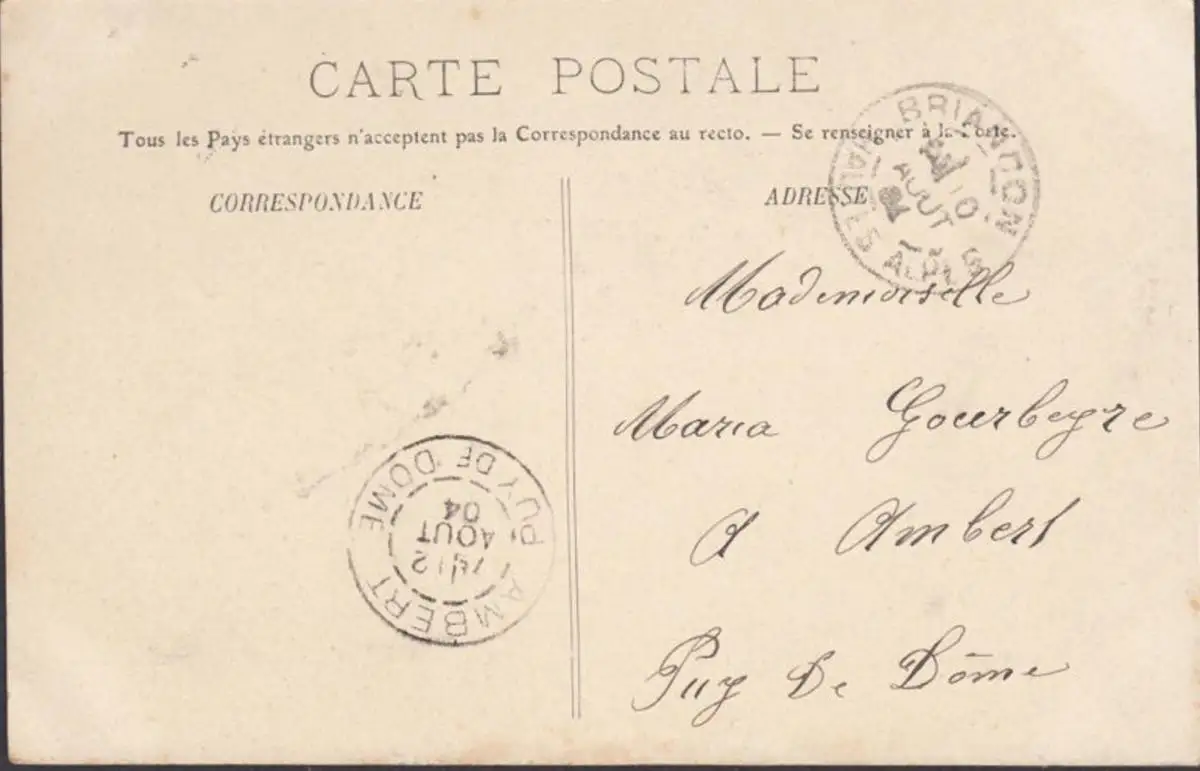 CARTE POSTALE
Tous les Pays étrangers n'acceptent pas la Correspondance au recto. — Se renseigner à la Poste.
CORRESPONDANCE
ADRESSE
BRIANÇON
HAUTES ALPES
10
AOUT
04
Mademoiselle
Maria Gourbeyre
A Ambert
Puy De Dôme
AMBERT
12
AOUT
04
PUY DE DOME